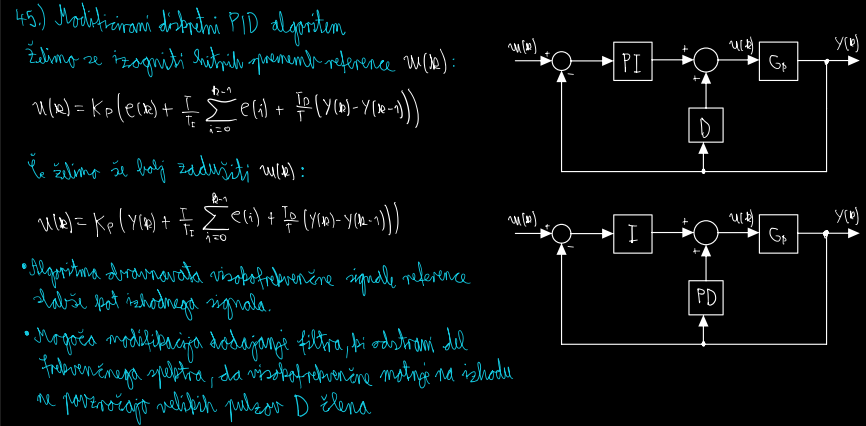 45.) Modificirani diskretni PID algoritem
Želimo se izogniti hitrih sprememb reference w(k):
u(k) = K_P (e(k) + T/T_I ∑_{i=0}^{k-1} e(i) + T_D/T (y(k) - y(k-1)))
Če želimo še bolj zadušiti w(k):
u(k) = K_P (y(k) + T/T_I ∑_{i=0}^{k-1} e(i) + T_D/T (y(k) - y(k-1)))
• Algoritma obravnavata visokofrekvenčne signale reference
slabše kot izhodnega signala.
• Mogoča modifikacija dodajanje filtra, ki odstrani del
frekvenčnega spektra, da visokofrekvenčne motnje na izhodu
ne povzročajo velikih pulzov D člena
w(k) - PI + + u(k) G_p y(k)
D
w(k) - I + + u(k) G_p y(k)
PD